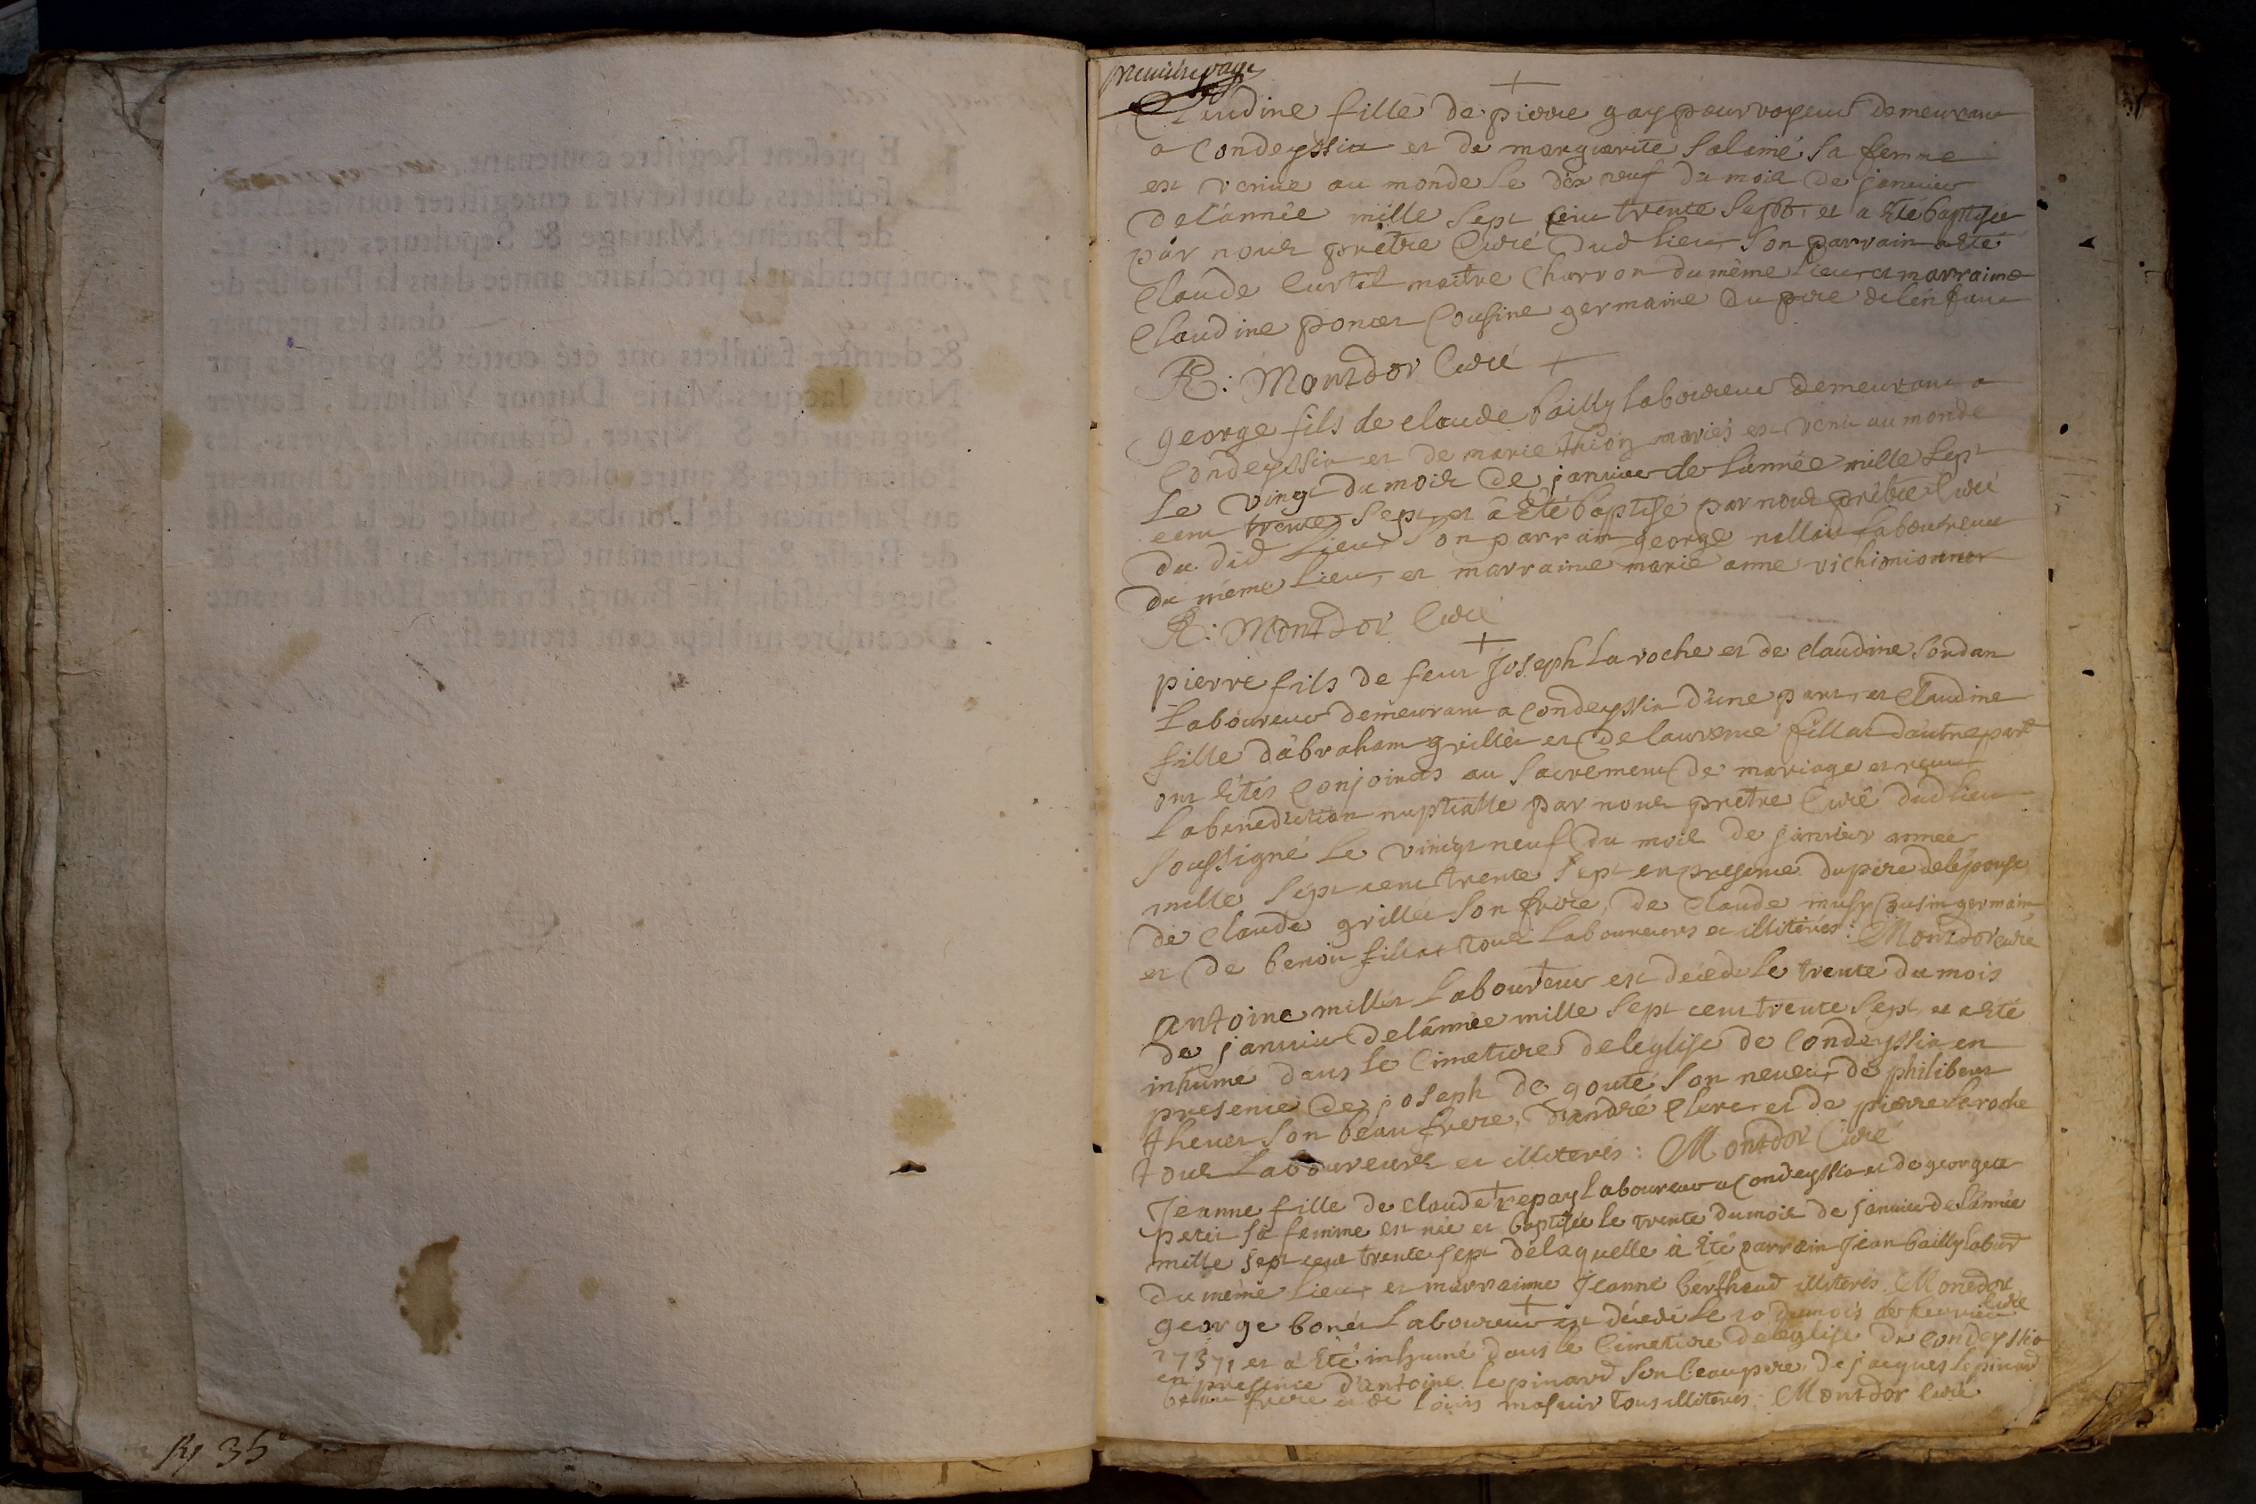 premiere page
Claudine fille de pierre gay pourvoyeur demeurant
a Condeyssia et de marguerite Salamé sa femme
est venue au monde le dix neuf du mois de janvier
de lánnée mille sept cent trente sept et a êté baptisée
par nous prêtre Curé dud lieu son parrain a êté
Claude Curtil maitre Charron du même lieu et marraine
Claudine poncet Cousine germaine du pere de lénfant
R: Montdor Curé
george fils de claude bailly laboureur demeurant a
Condeyssia et de marie thion mariés est venu au monde
le vingt du mois de janvier de lánnée mille sept
cent trente sept et a êté baptisé par nous prêtre Curé
du did lieu son parrain george nallet laboureur
du même lieu et marraine marie anne vichimionner
R: Montdor Curé
pierre fils de feu Joseph Laroche et de claudine Sordan
Laboureur demeurant a Condeyssia dúne part, et Claudine
fille dábraham grillet et de laurence fillat dáutre part
ont êtés Conjoincts au Sacrement de mariage et reçu
la benediction nuptialle par nous prêtre Curé dud lieu
soussigné le vingt neuf du mois de janvier année
mille sept cent trente sept en presence du pere de lépouse
de Claude grillet son frere, de Claude musy Cousin germain
et de benoit fillat tous laboureurs et illiterés: Montdor Curé
Antoine millet Laboureur est decedé le trente du mois
de janvier de lánnée mille sept cent trente sept, et a êté
inhumé dans le Cimetiere de leglise de Condeyssia en
presence de joseph de gouté son neveu, de philibert
thevet son beau frere, dandré Clerc, et de pierre laroche
tous Laboureurs et illiterés: Montdor Curé
Jeanne fille de Claude trepay laboureur a Condeyssia et de georgette
petit sa femme est née et baptisée le trente du mois de janvier de lánnée
mille sept cent trente sept de laquelle à êté parrain Jean bailly labour
du même lieu et marrainne Jeanne berthaud illiterés. Montdor
Curé
george bonet Laboureur est décédé le 10 du mois de fevrier
1737, et a êté inhumé dans le Cimetiere de leglise de Condeyssia
en presence dantoine lepinard son beaupere, de jacques lepinard
beau frere et de loüis masuir tous illiterés. Montdor Curé
E present Registre contenant
feüillets, doit servir à enregistrer tous les Actes
de Batême, Mariage & Sepultures qui se fe-
ront pendant la prochaine année dans la Paroisse de
1737.
dont les premier
& dernier feüillets ont été cottés & paraphés par
Nous Jacques-Marie Dutour Vulliard, Ecuyer
Seigneur de S. Nizier, Gramont, les Ayres, les
Poliatieres & autres places, Conseiller d'honneur
au Parlement de Dombes, Sindic de la Noblesse
de Bresse & Lieutenant General au Bailliage &
Siege Présidial de Bourg. En nôtre Hôtel le trente
Decembre mil sept cent trente six.
35